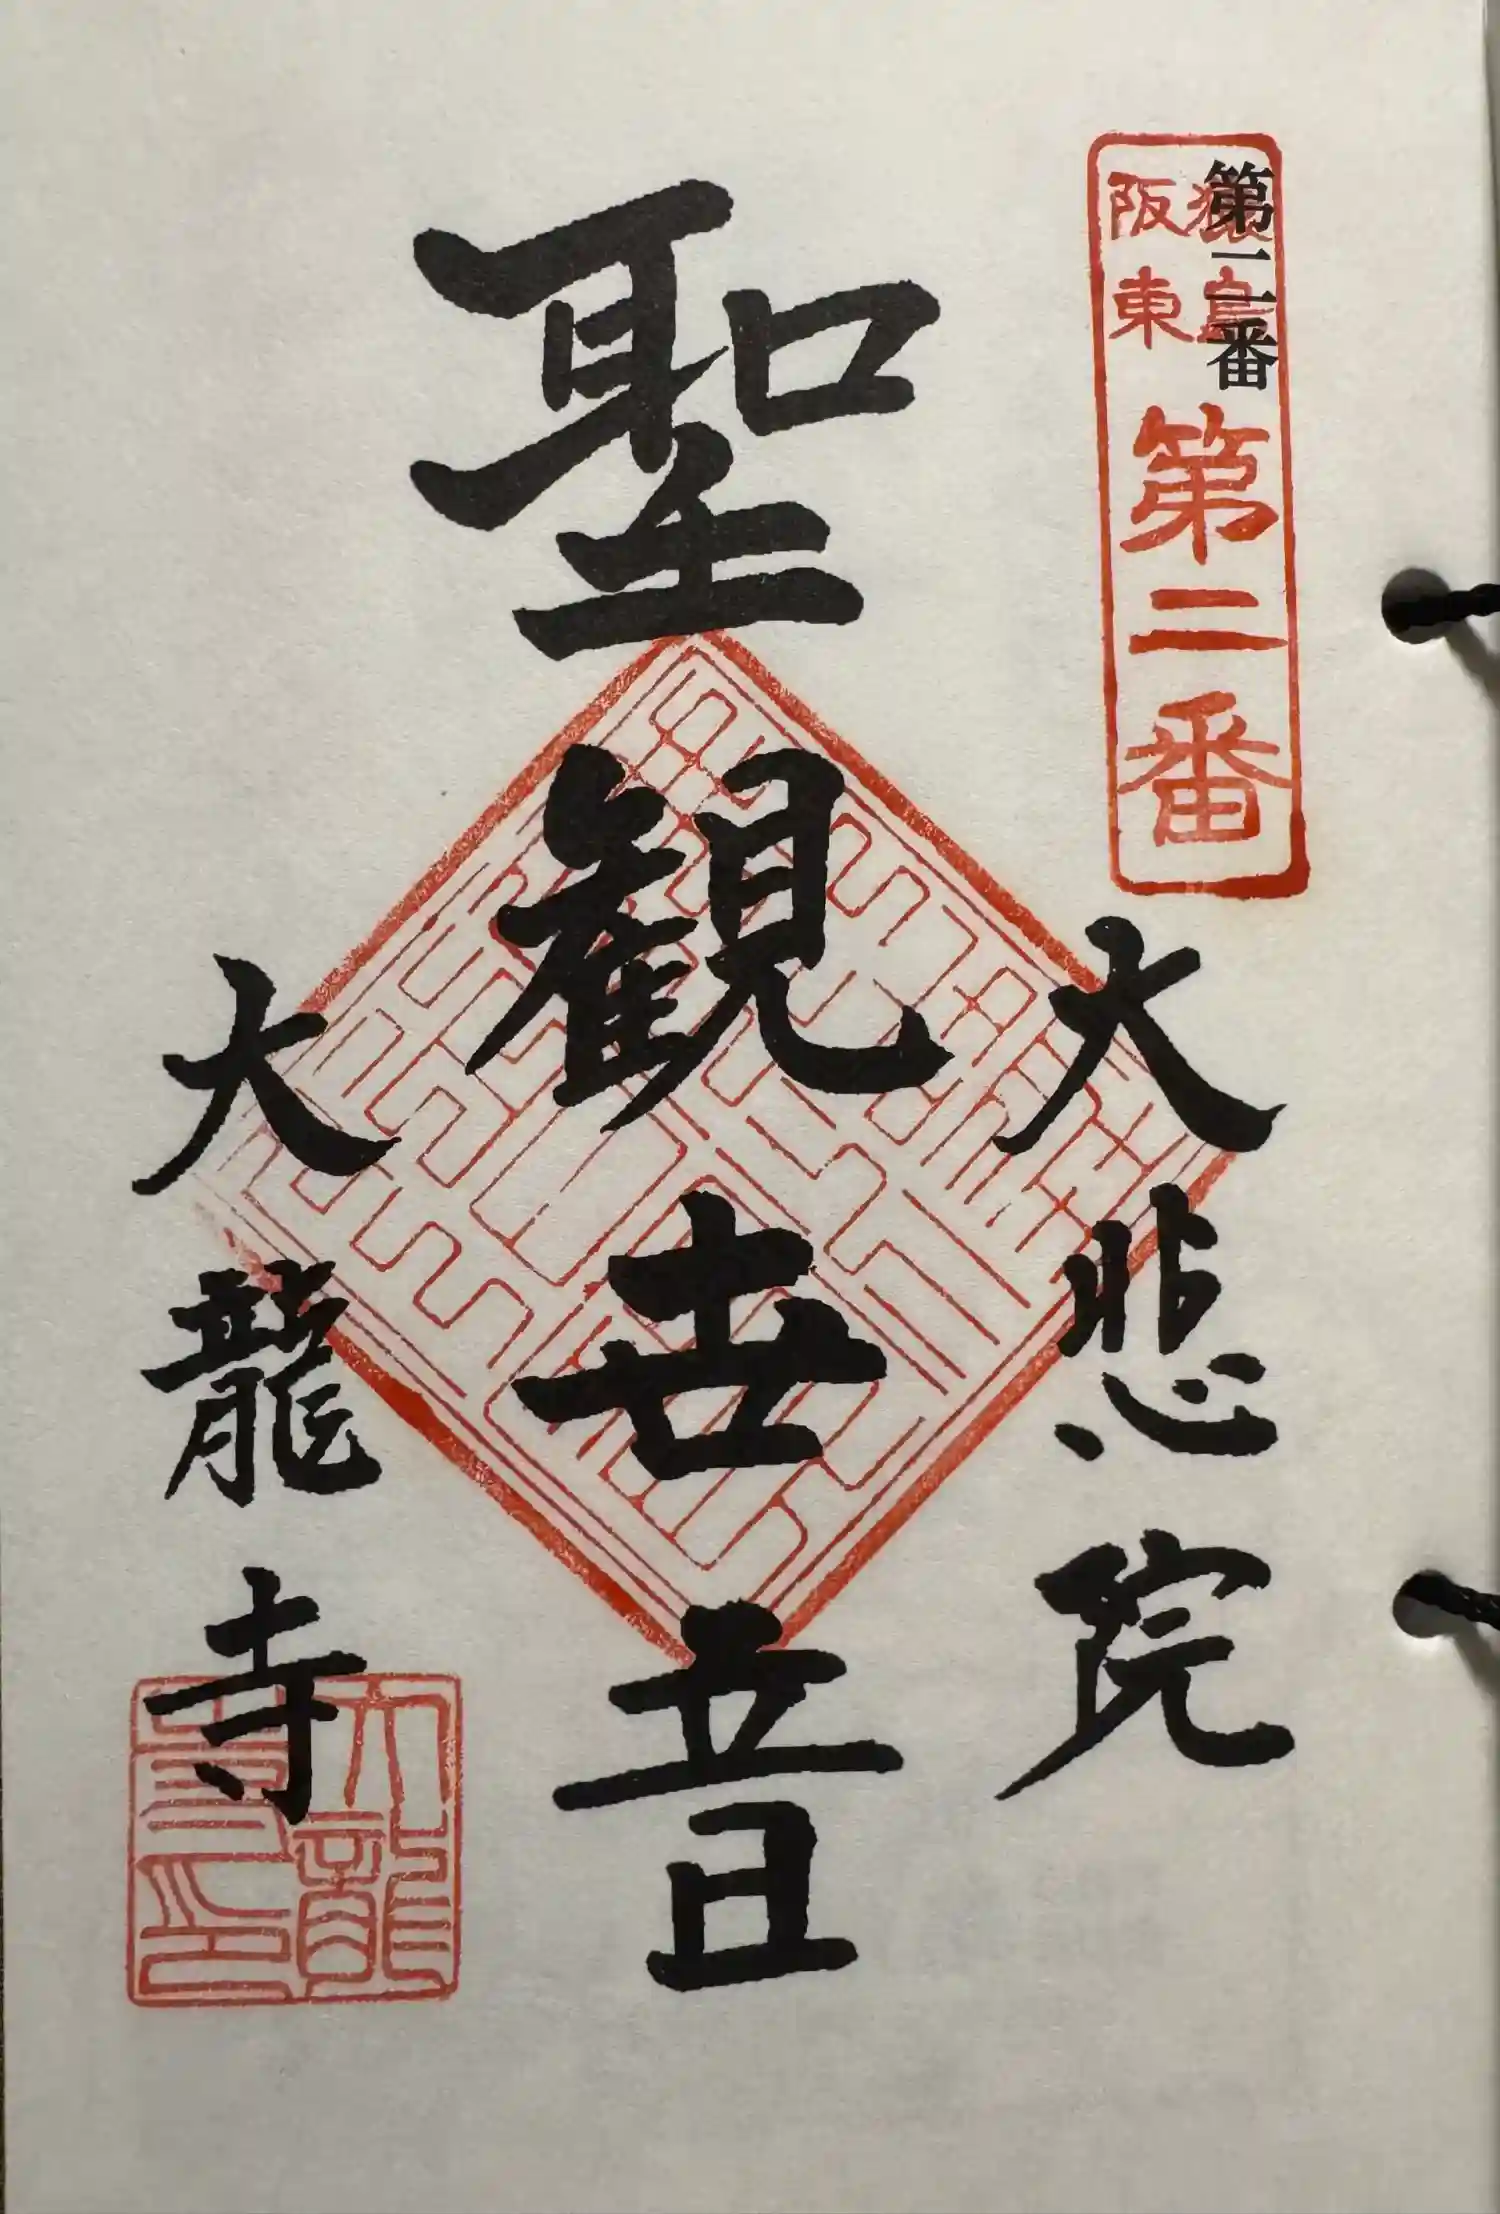 第二番
猿島
阪東
第二番
大悲院
聖観世音
大龍寺
大龍
寺印